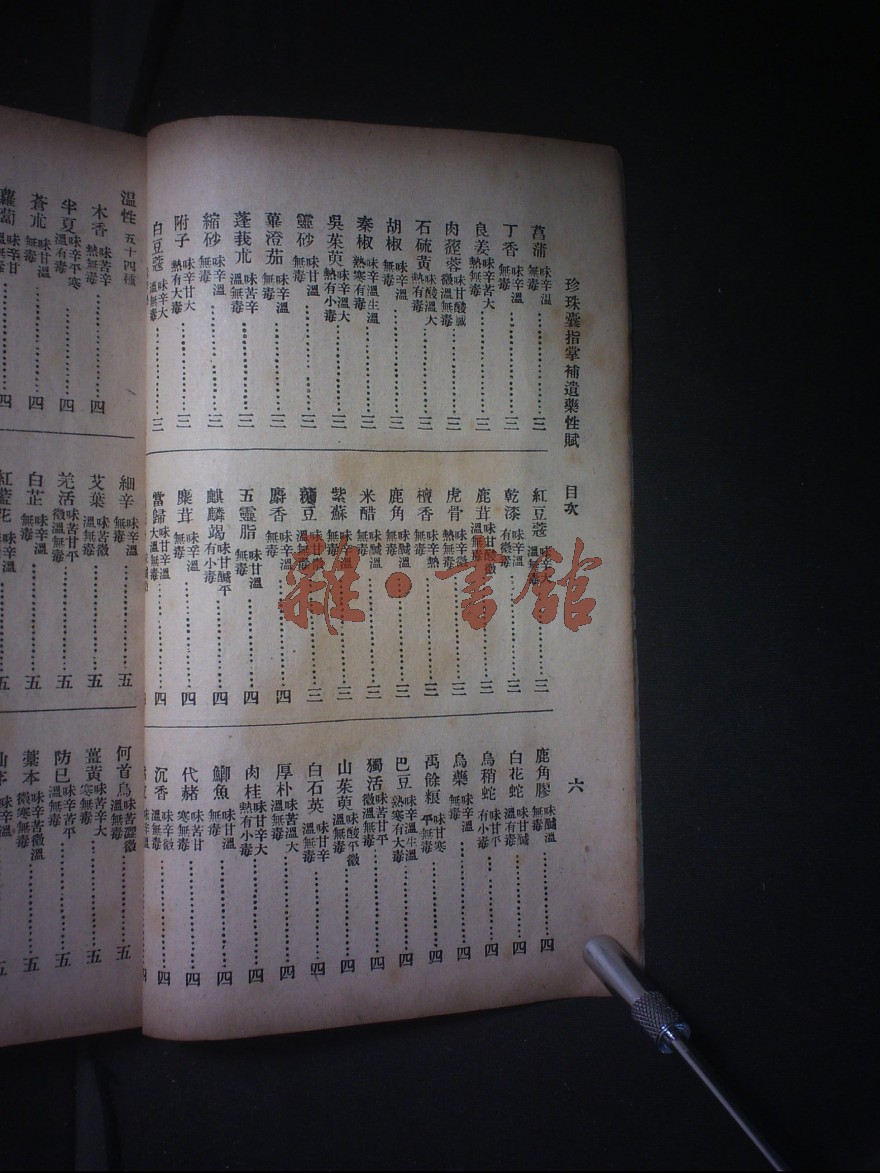 珍珠囊指掌補遺藥性賦 目次 六
菖蒲 味辛溫無毒 三
丁香 味辛溫無毒 三
良姜 味辛苦大熱無毒 三
肉蓯蓉 味甘酸鹹微溫無毒 三
石硫黃 味酸溫大熱有毒 三
胡椒 味辛溫無毒 三
秦椒 味辛溫生溫熟寒有毒 三
吳茱萸 味辛溫大熱有小毒 三
靈砂 味甘溫無毒 三
蓽澄茄 味辛溫無毒 三
蓬莪朮 味苦辛溫無毒 三
縮砂 味辛溫無毒 三
附子 味辛甘大熱有大毒 三
白豆蔻 味辛大溫無毒 三
紅豆蔻 味辛大溫無毒 三
乾漆 味辛溫有微毒 三
鹿茸 味甘酸微溫無毒 三
虎骨 味辛微熱無毒 三
檀香 味辛熱無毒 三
鹿角 味鹹溫無毒 三
米醋 味鹹溫無毒 三
紫蘇 味辛溫無毒 三
豆 味甘微溫無毒 三
麝香 味辛溫無毒 四
五靈脂 味甘溫無毒 四
麒麟竭 味甘鹹平有小毒 四
麋茸 味辛溫無毒 四
當歸 味甘辛溫大溫無毒 四
鹿角膠 味鹹溫無毒 四
白花蛇 味甘鹹溫有毒 四
烏稍蛇 味甘平有小毒 四
烏藥 味辛溫無毒 四
禹餘糧 味甘寒平無毒 四
巴豆 味辛溫生溫熟寒有大毒 四
獨活 味苦甘平微溫無毒 四
山茱萸 味酸平微溫無毒 四
白石英 味甘辛溫無毒 四
厚朴 味苦溫大溫無毒 四
肉桂 味甘辛大熱有小毒 四
鯽魚 味甘溫無毒 四
代赭 味苦甘寒無毒 四
沉香 味辛微溫無毒 四
溫性 五十四種
木香 味苦辛熱無毒 四
半夏 味辛平寒溫有毒 四
蒼朮 味甘溫無毒 四
蘿蔔 味辛甘溫無毒 四
細辛 味辛溫無毒 五
艾葉 味苦微溫無毒 五
羌活 味苦甘平微溫無毒 五
白芷 味辛溫無毒 五
紅藍花 味辛溫無毒 五
何首烏 味苦澀微溫無毒 五
薑黃 味辛苦大寒無毒 五
防巳 味辛苦平溫無毒 五
藁本 味辛苦微溫微寒無毒 五
雜·書館